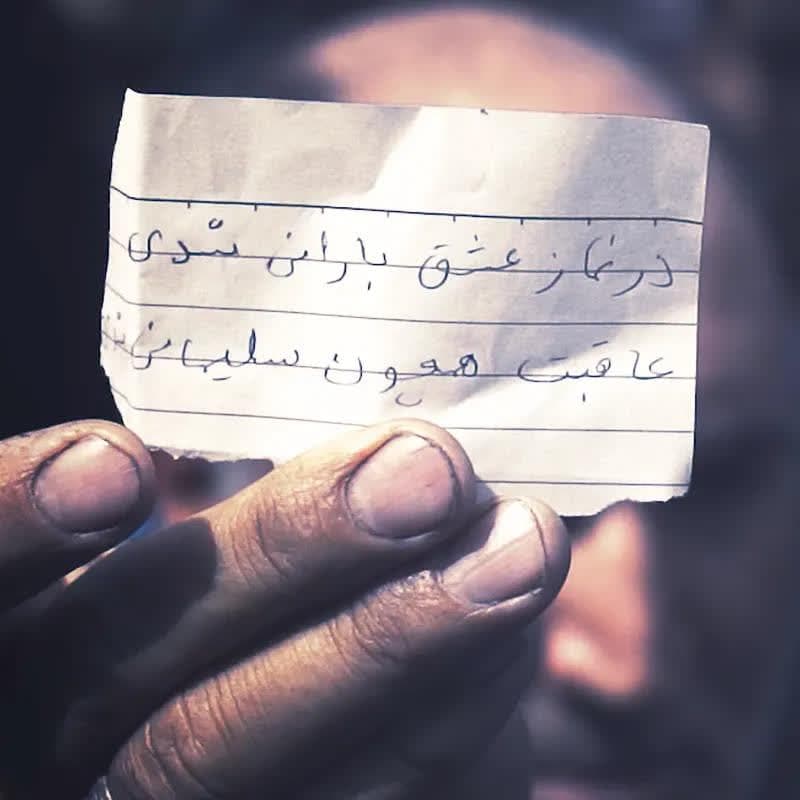 در نماز عشق بارانی شدی
عاقبت همچون سلیمانی